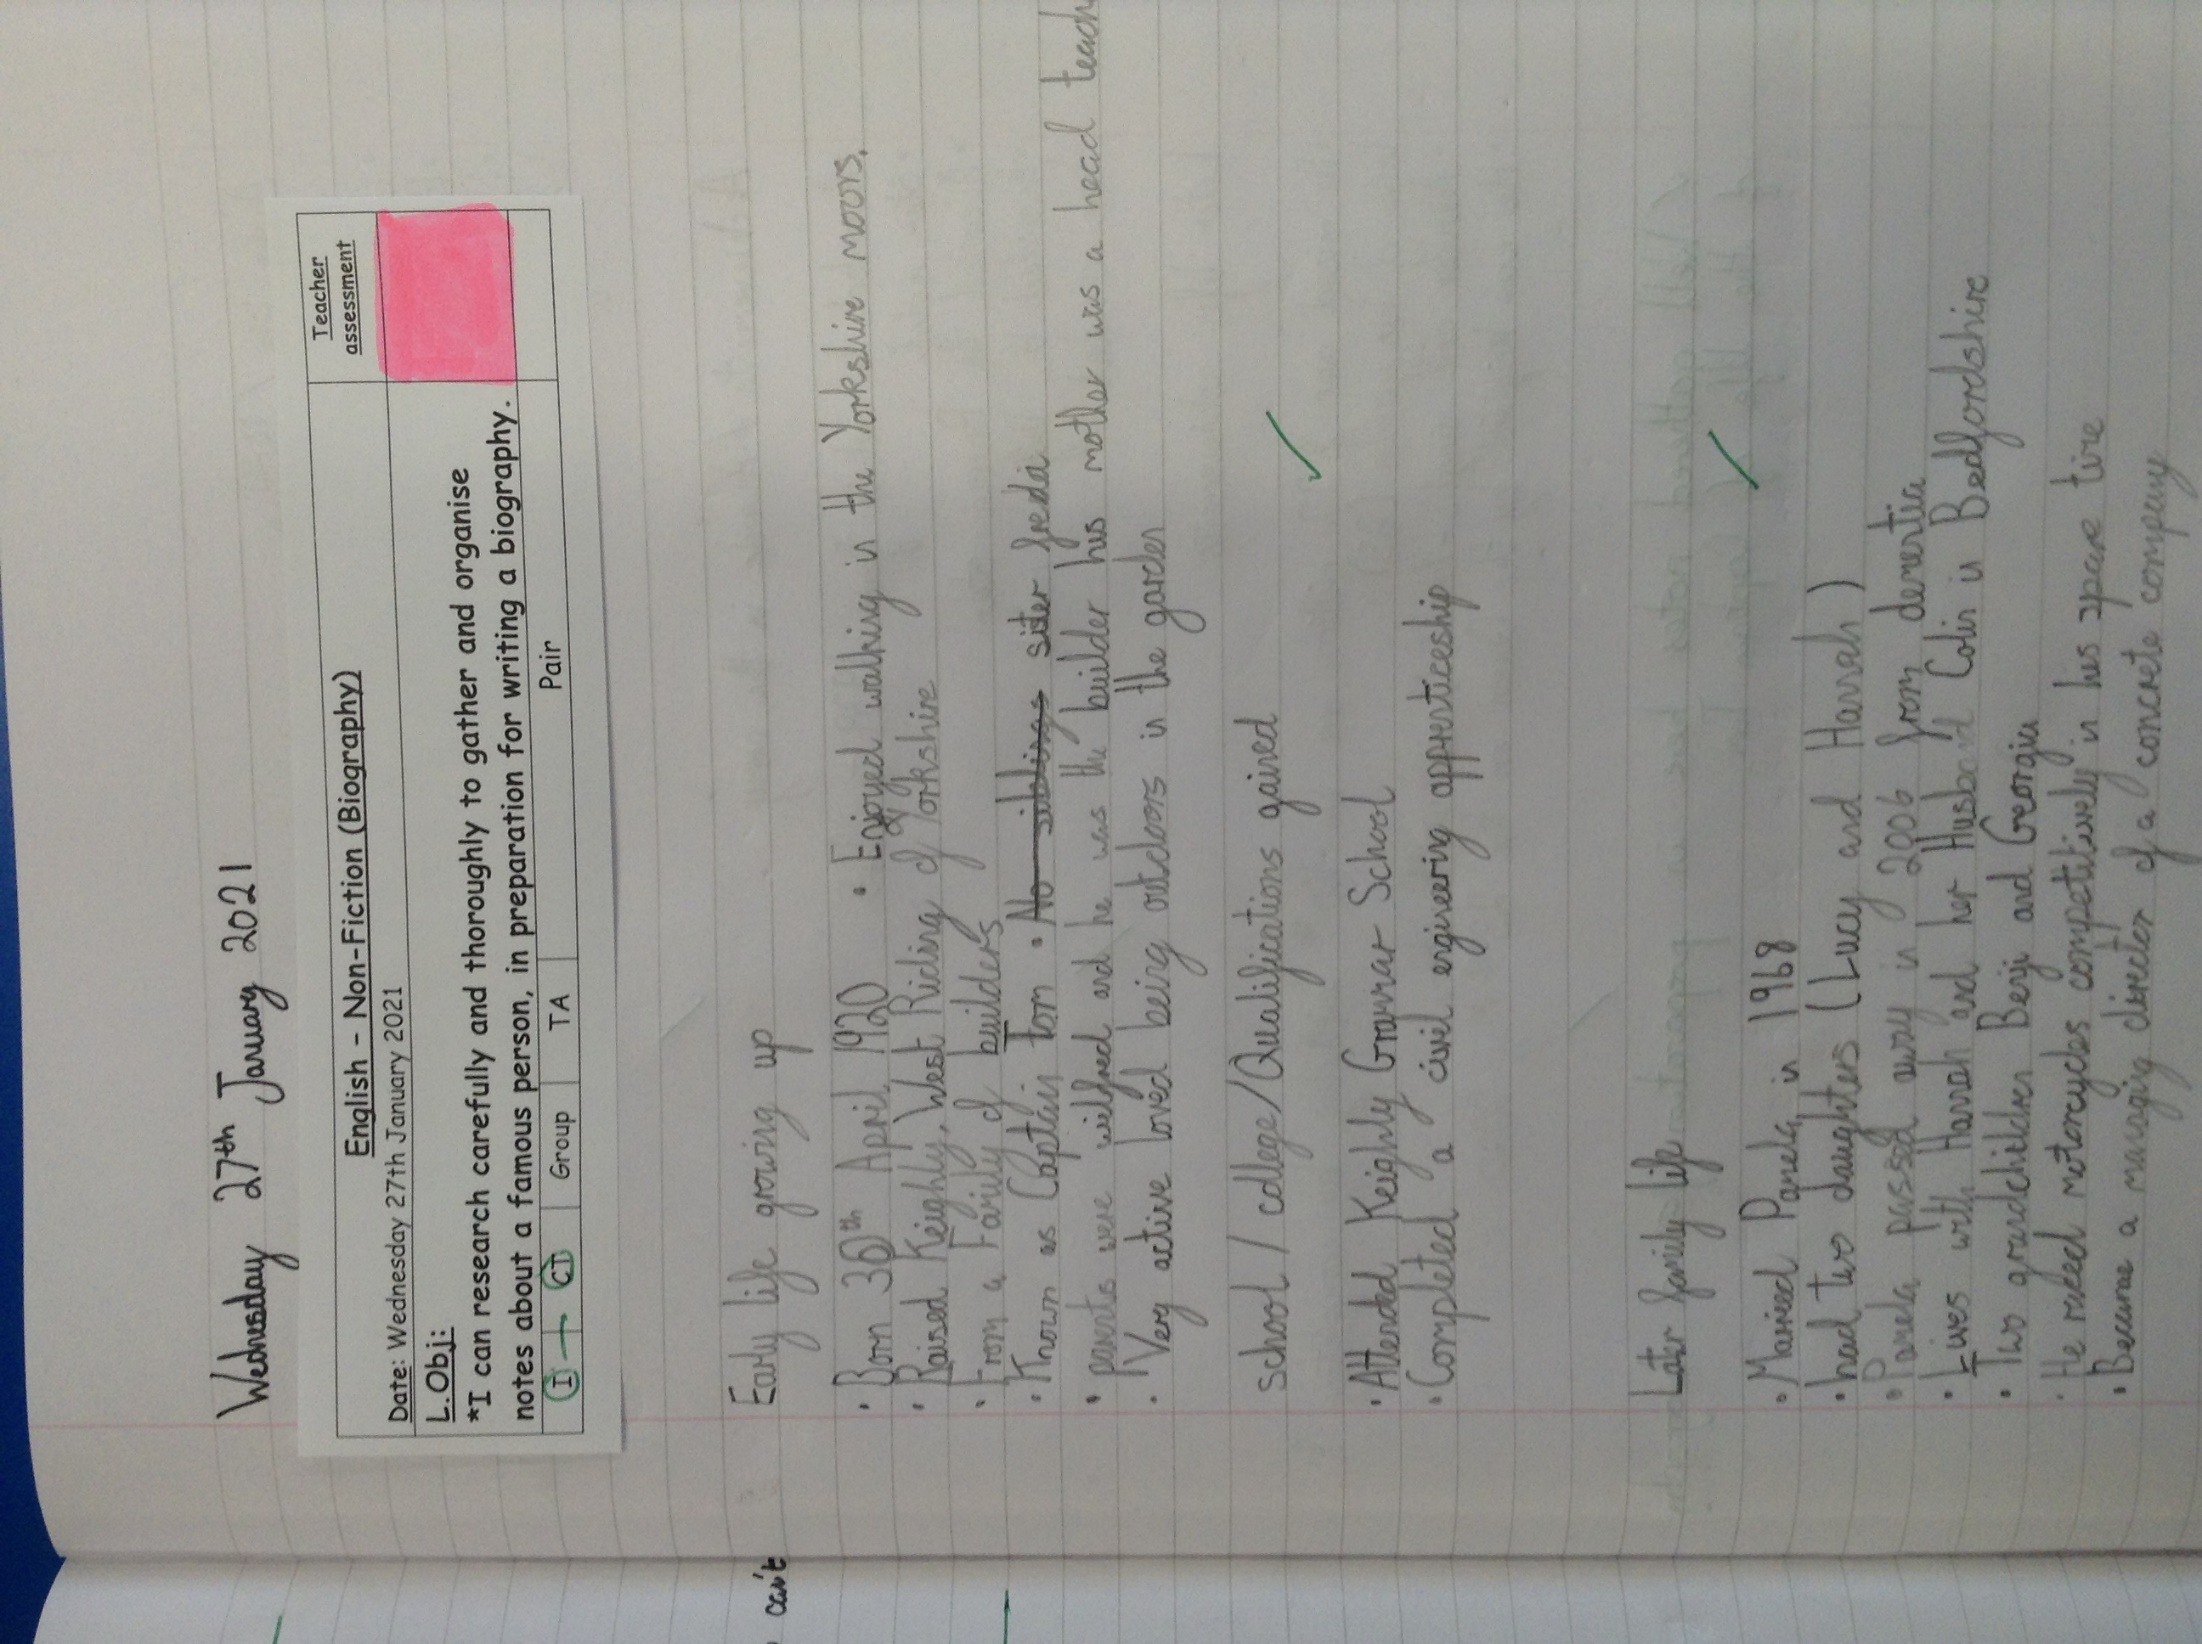 Wednesday 27th January 2021
English - Non-Fiction (Biography)
Teacher assessment
Date: Wednesday 27th January 2021
L.Obj:
*I can research carefully and thoroughly to gather and organise
notes about a famous person, in preparation for writing a biography.
I CT Group TA Pair
Early life growing up
• Born 30th April 1920 • Enjoyed walking in the Yorkshire moors.
• Raised Keighly, West Riding of Yorkshire
• From a Family of builders
• Known as Captain Tom • No siblings sister freda
• parents were wilfred and he was the builder his mother was a head teach
• Very active loved being outdoors in the garden
school / college/Qualifications gained
• Attended Keighly Grammar School
• Completed a civil engineering apprenticeship
Later family life
• Married Pamela in 1968
• had two daughters (Lucy and Hannah)
• Pamela passed away in 2006 from dementia
• Lives with Hannah and her Husband Colin in Bedfordshire
• Two grandchildren Benji and Georgia
• He raced motorcycles competitively in his spare time
• Became a managing director of a concrete company
can't